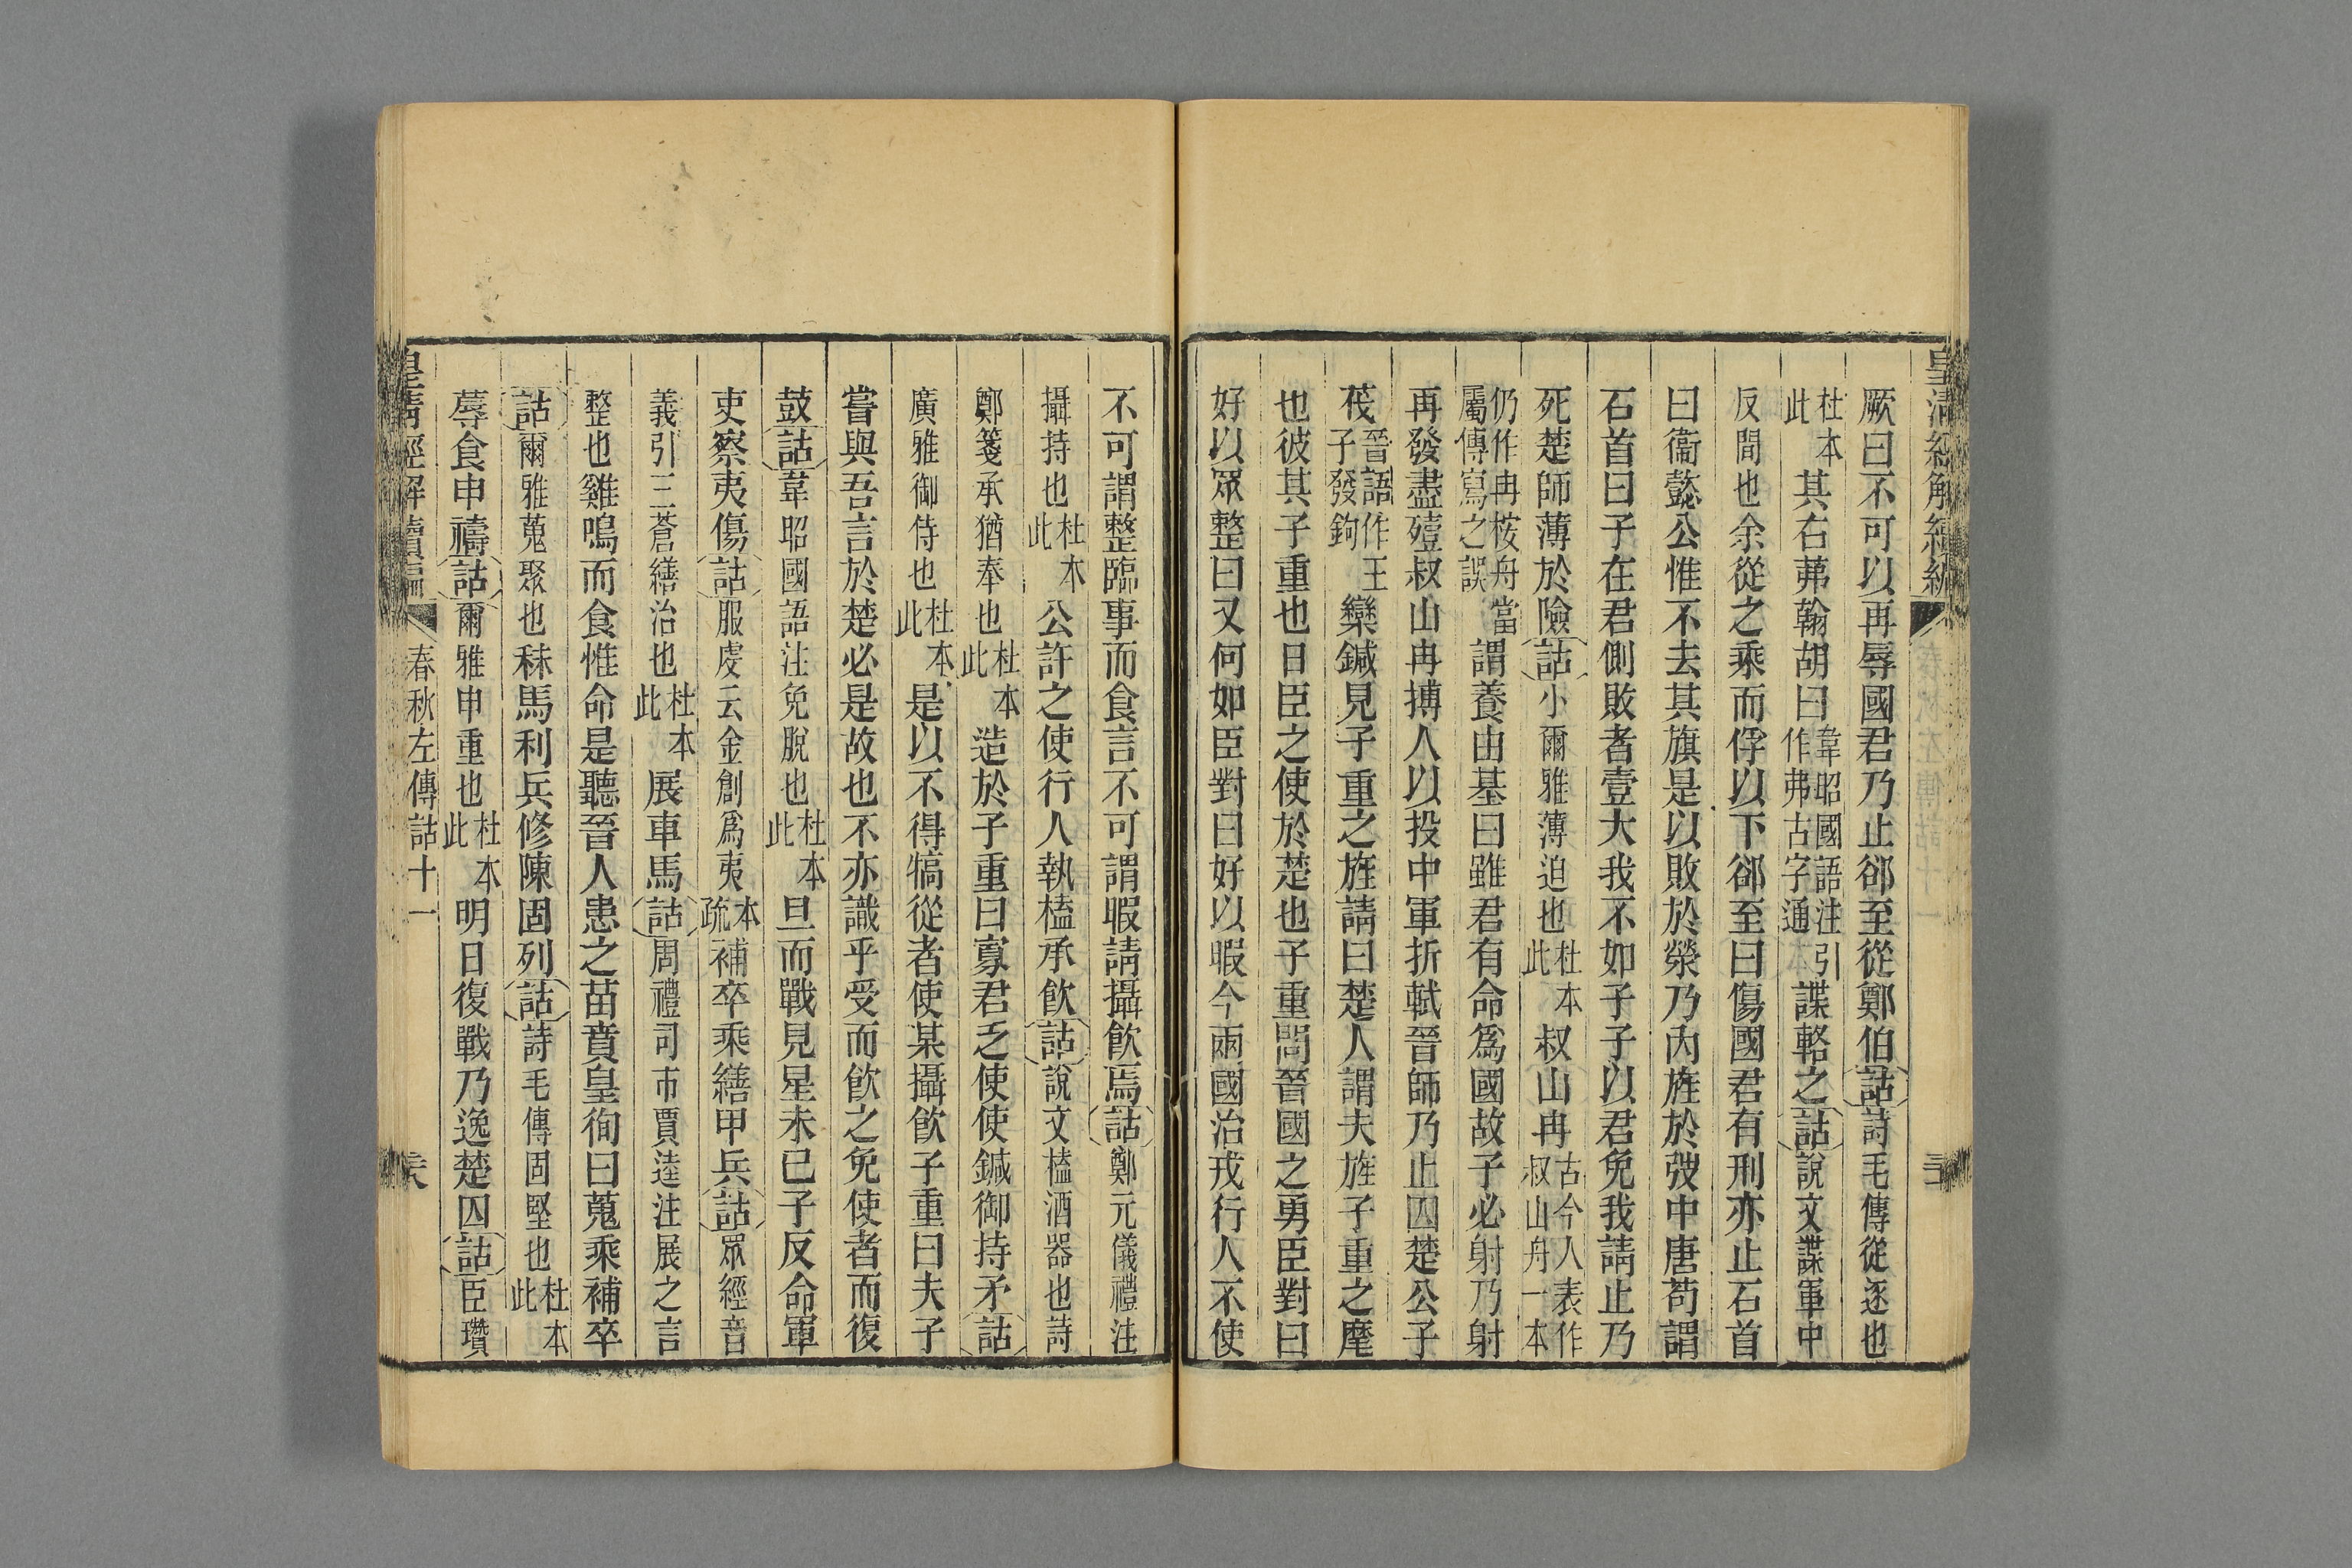 厥曰不可以再辱國君乃止郤至從鄭伯詁詩毛傳從逐也
杜本此其右茀翰胡曰韋昭國語注引作弗古字通諜輅之詁說文諜軍中
反間也余從之乘而俘以下郤至曰傷國君有刑亦止石首
曰衞懿公惟不去其旗是以敗於滎乃內旌於弢中唐苟謂
石首曰子在君側敗者壹大我不如子子以君免我請止乃
死楚師薄於險詁小爾雅薄迫也杜本此叔山冉古今人表作叔山舟一本
仍作冉桉舟當屬傳寫之誤謂養由基曰雖君有命爲國故子必射乃射
再發盡殪叔山冉搏人以投中軍折軾晉師乃止囚楚公子
茷晉語作王子發鉤欒鍼見子重之旌請曰楚人謂夫旌子重之麾
也彼其子重也日臣之使於楚也子重問晉國之勇臣對曰
好以眾整曰又何如臣對曰好以暇今兩國治戎行人不使
不可謂整臨事而食言不可謂暇請攝飲焉詁鄭元儀禮注
攝持也杜本此公許之使行人執榼承飲詁說文榼酒器也詩
鄭箋承猶奉也杜本此造於子重曰寡君乏使使鍼御持矛詁
廣雅御侍也杜本此是以不得犒從者使某攝飲子重曰夫子
嘗與吾言於楚必是故也不亦識乎受而飲之免使者而復
鼓詁韋昭國語注免脫也杜本此旦而戰見星未已子反命軍
吏察夷傷詁服虔云金創爲夷本疏補卒乘繕甲兵詁眾經音
義引三蒼繕治也杜本此展車馬詁周禮司市賈逵注展之言
整也雞鳴而食惟命是聽晉人患之苗賁皇徇曰蒐乘補卒
詁爾雅蒐聚也秣馬利兵修陳固列詁詩毛傳固堅也杜本此
蓐食申禱詁爾雅申重也杜本此明日復戰乃逸楚囚詁臣瓚
皇清經解續編 春秋左傳詁十一